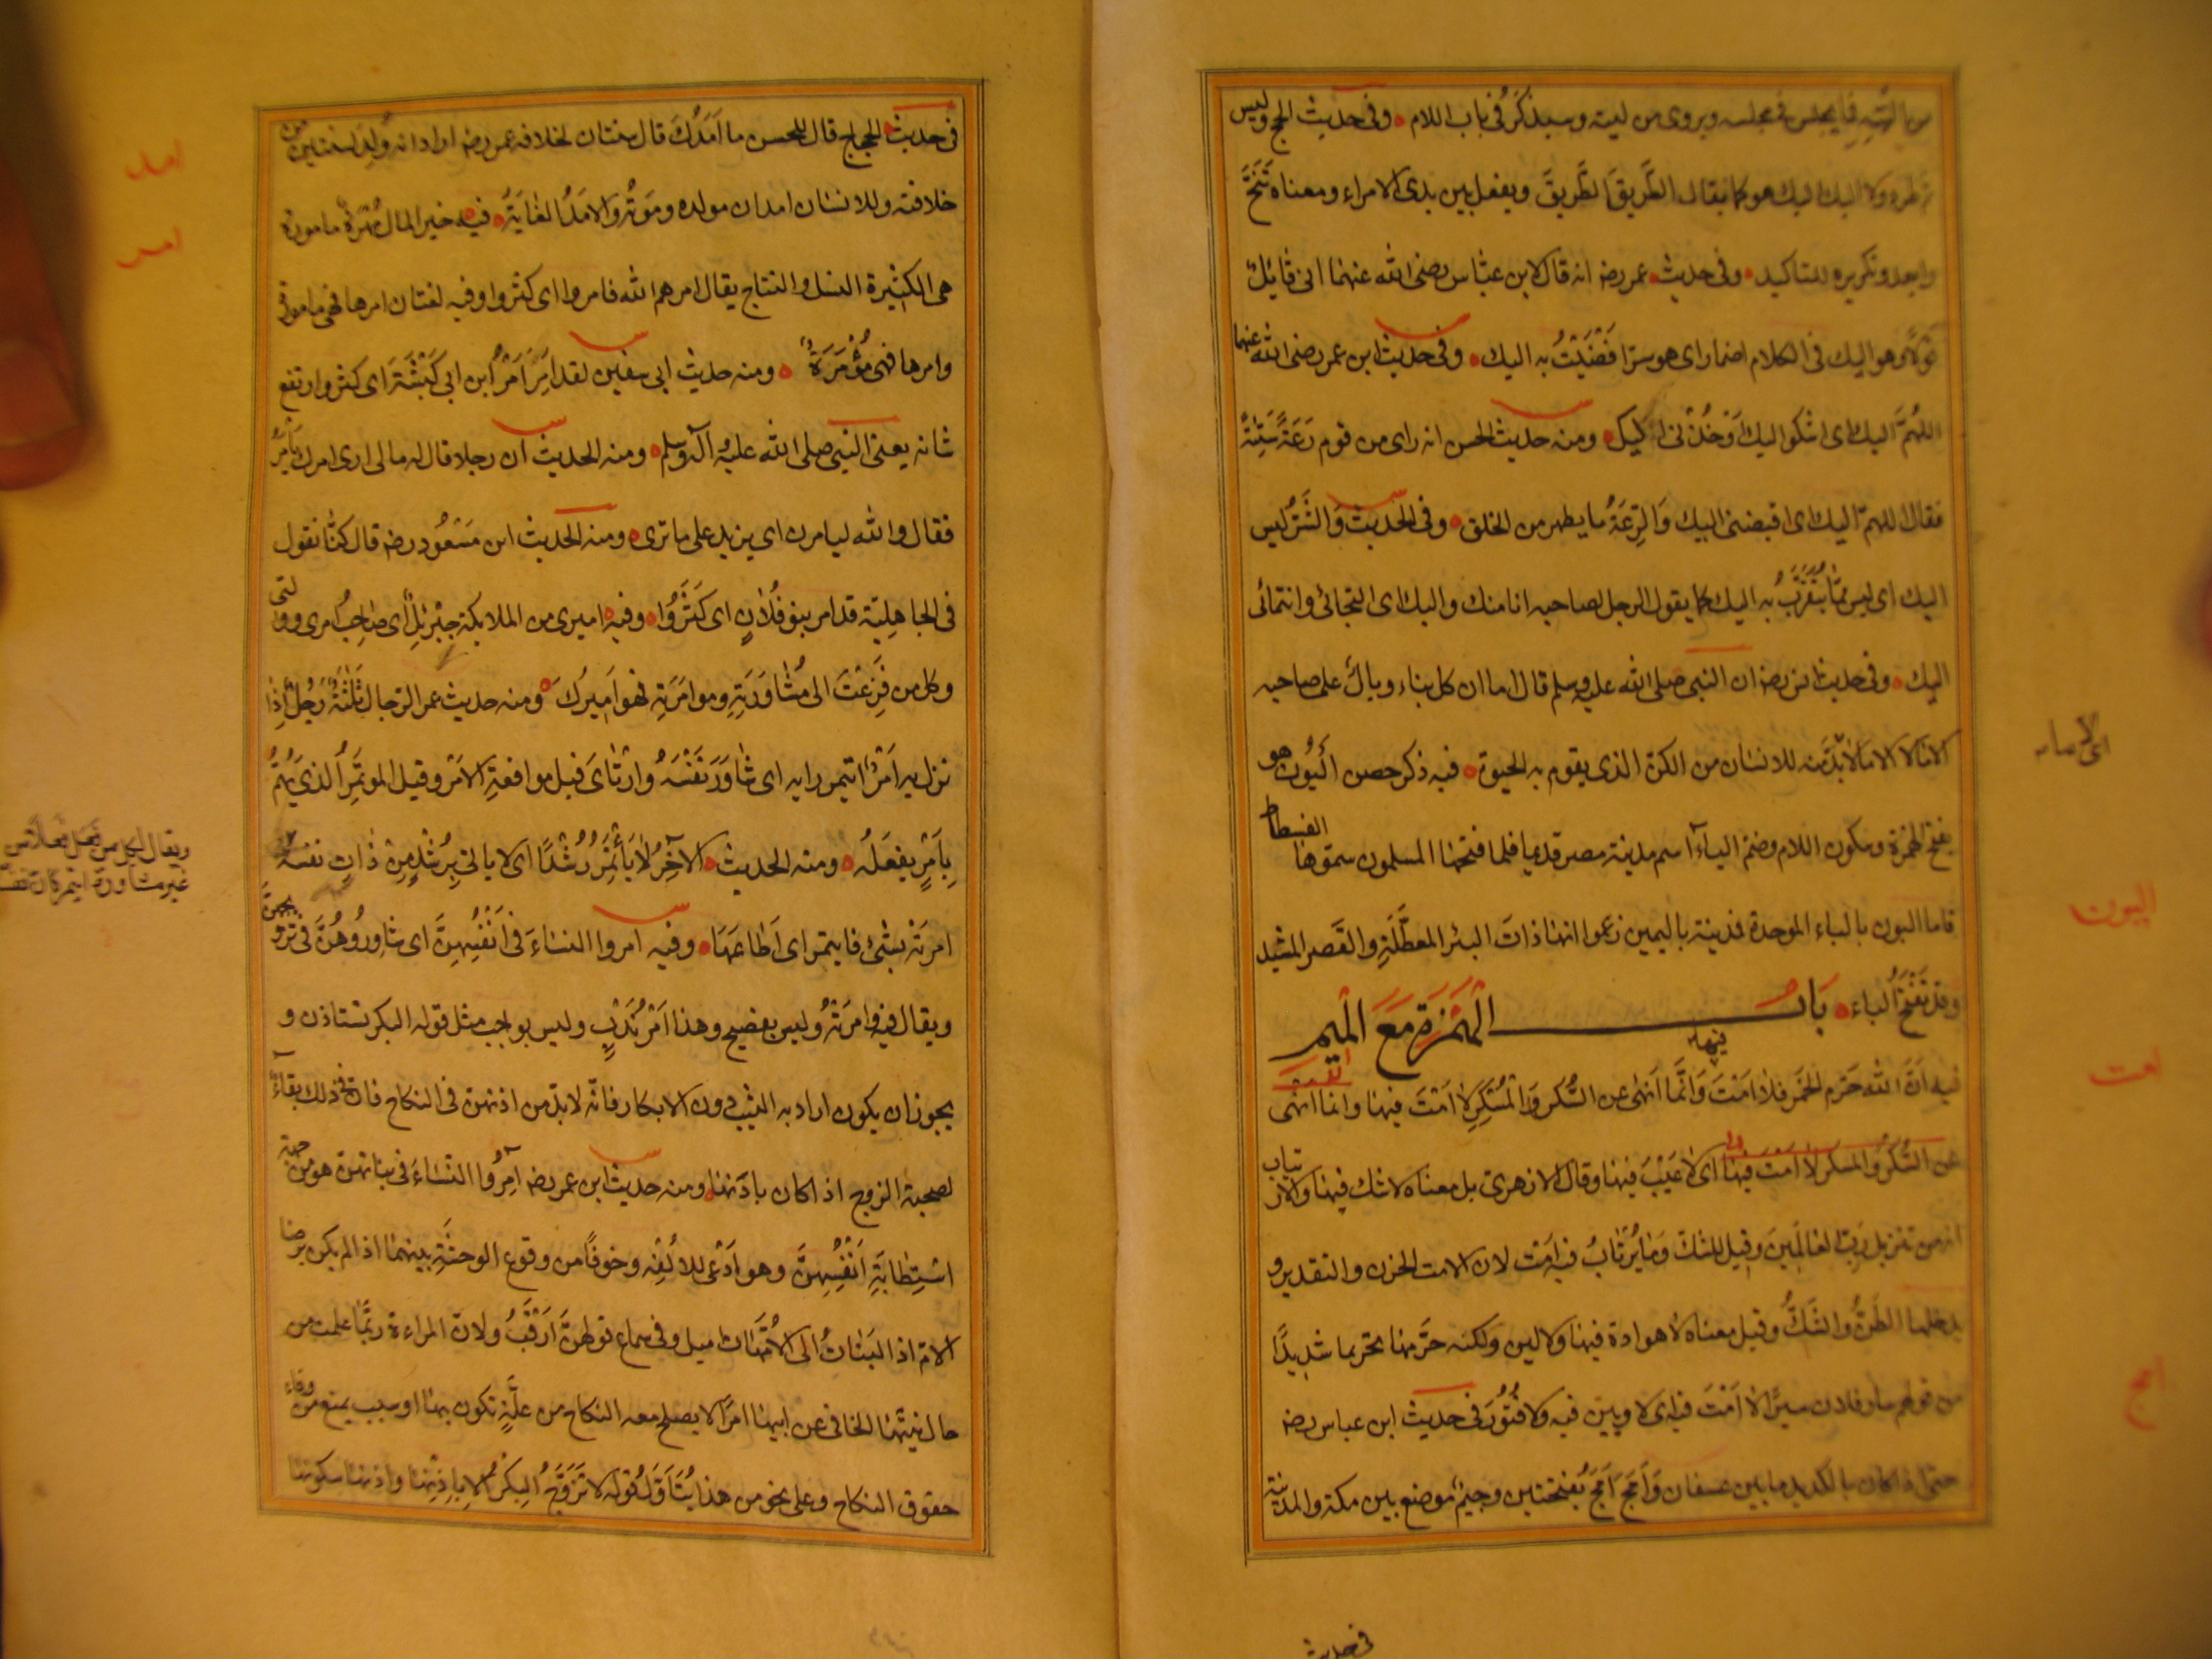 من اليته فما يجلس في مجلسه ويروى من ليته وسيذكر في باب اللام وفي حديث الحج وليس
ثم طرد ولا اليك اليك هو كما يقال الطَّريقَ الطَّريقَ ويفعل بين يدى الامراء ومعناه تَنَحَّ
وابعد وتكريره للتاكيد وفي حديث عمر رضه انه قال لابن عبّاس رضى الله عنهما انى قائل لك
قولا وهو اليك فى الكلام اضمار اى هو سرّ افضَيْتُ به اليك وفي حديث ابن عمر رضى الله عنهما
اللهُمَّ اليك اى اشكوا اليك اَوْ خُذْنى اِلَيك ومنه حديث الحسن انه راى من قوم رَعَةً سَيّئةً
فقال اللهمّ اليك اى اقبضنى اليك وَالرِّعَةُ ما يظهر من الخلق وفى الحديث وَالشَّرُّ ليس
اليك اى ليس ممّا يُتَقَرَّبُ به اليك كما يقول الرجل لصاحبه انا منك واليك اى التجائى وانتمائى
اليك وفى حديث انس رضه ان النبى صلى الله عليه وسلم قال اما ان كل بناء وبال على صاحبه
الا مالا الا مالا الا مالابُدَّ منه للانسان من الكن الذى يقوم به الحيوة فيه ذكر حصن اَلْيُون هو
بفتح الهمزة وسكون اللام وضم الياء اسم مدينة مصر قديما فلما فتحها المسلمون سمّوها الفسطاط
فاما البون بالباء الموحدة فمدينة باليمين زعموا انها ذات البئر المعطَّلَةِ والقَصر المشيد
وقد تُفْتَحُ الباء بَابُ الْهَمْزَةِ مَعَ الْمِيمِ
فيه اَنَّ الله حَرّم الخَمر فلا امَتَ فيها وَانَّما اَنهى عن السُّكر وَالْمُسْكِرِ لاَ امَتَ فيها وانما انهى
عن السُّكر والمسكر لا اَمْتَ فيها اى لا عَيْبَ فيها وقال الازهرى بل معناه لا شك فيها ولا ارتياب
انه من تنزيل رَبّ العَالَمِينَ وقيل للشك وَمايُرْتابُ فيه اَمت لان الامت الحزر والتقدير و
يدخلهما الظَنُّ والشَّكُّ وقيل معناه لا هوادة فيها ولا لين ولكنه حَرَّمها تحريما شديدًا
من قولهم سار فلان سيرًا لا اَمْتَ فيه اى لا وهن فيه ولا فُتُورَ فى حديث ابن عباس رضه
حتى اذا كان بالكديد ما بين عسفان وَاَمَجَ اَمَجَ بفتحتين وجيم موضع بين مكة والمدينة
اليون
امت
امج
فى حديث
فى حديث الحجاج قال للحسن ما اَمَدُكَ قال سنتان لخلافة عمر رضه اراد انه وُلِدَ لسنتين من
خلافته وللانسان امدان مولده وموتُه وَالامَدُ الغايَةُ فيه خير المال مُهْرَةٌ مامورة
هى الكثيرة النسل والنتاج يقال امرهم الله فامروا اى كثروا وفيه لغتان امرها فهى مامورة
وامرها فهى مُؤْمَرَةٌ ومنه حديث ابى سفين لقد اَمِرَ اَمْرُ ابن ابى كَبْشَةَ اى كثر وارتفع
شانه يعنى النبى صلى الله عليه آله وسلم ومنه الحديث ان رجلا قال له مالى ارى امرك يَأْمَرُ
فقال والله ليامرن اى يزيد على ما ترى ومنه الحديث ابن مَسْعُود رضه قال كنّا نقول
فى الجاهِليّة قد امر بنو فُلانٍ اى كَثُرُوا وفيه اميرى من الملايكة جِبْرئيلُ اى صاحِبُ امرى وولىّ
وكل من فَزِعْتَ الى مُشاوَرَتِهِ وموامَرَتِهِ فهو اَمِيرُكَ ومنه حديث عمر الرّجال ثَلثَةٌ رَجُلٌ اِذا
نزل به اَمْرٌ ايتمر رايه اى شاوَرَ نَفْسَهُ وارتاى قبل مواقعةِ الامر وقيل الموتَمِرُ الذى يَهُمُّ
بِاَمْرٍ يفعَلُه ومنه الحديث الآخِرُ لايَأْتَمِرُ رُشْدًا اى لا ياتى بِرُشْدٍ مِنْ ذاتِ نفسه
امرته بشئ فايتمر اى اَطاعَهَا وفيه امروا النساءَ فى اَنْفُسِهِنَّ اى شاورُوهُنَّ فى تزويجهنّ
ويقال فيه وامرته وليس بفصيح وهذا اَمْرُ نَدْبٍ وليس بواجب مثل قوله البكر تستاذن و
يجوز ان يكون اراد به الثيّب دون الابكار فانّه لا بدّ من اذنهن فى النكاح فان فى ذلك بقاءً
لصحبة الزوج اذا كان باذنها ومنه حديث ابن عمر رضه آمِرُوا النّساءَ فى بناتهن هو من جهة
اسْتِطابَةِ اَنْفُسِهِنَّ وهو اَدْعى للاُلفة وخوفًا من وقوع الوحشَةِ بينهما اذا لم يكن برضا
الام اذ البَنَاتُ الى الاُمَّهَات اميل وفى سماع قولهنَّ اَرْغَبُ ولان المراءة ربّما علمت من
حال بنتها الخافى عن ابيها امرًا لا يصلح معه النكاح من علَّةٍ تكون بها او سبب يمنع من وفاء
حقوق النكاح وعلى نحو من هذا يُتَاَوَّلُ قوله لا تُزَوَّجُ البِكْرُ الا باِذنها واذنها سكوتها
امد
امر
ويقال لكل من فعل فعلا من
غير مشاورة ايتمر كان نفسه